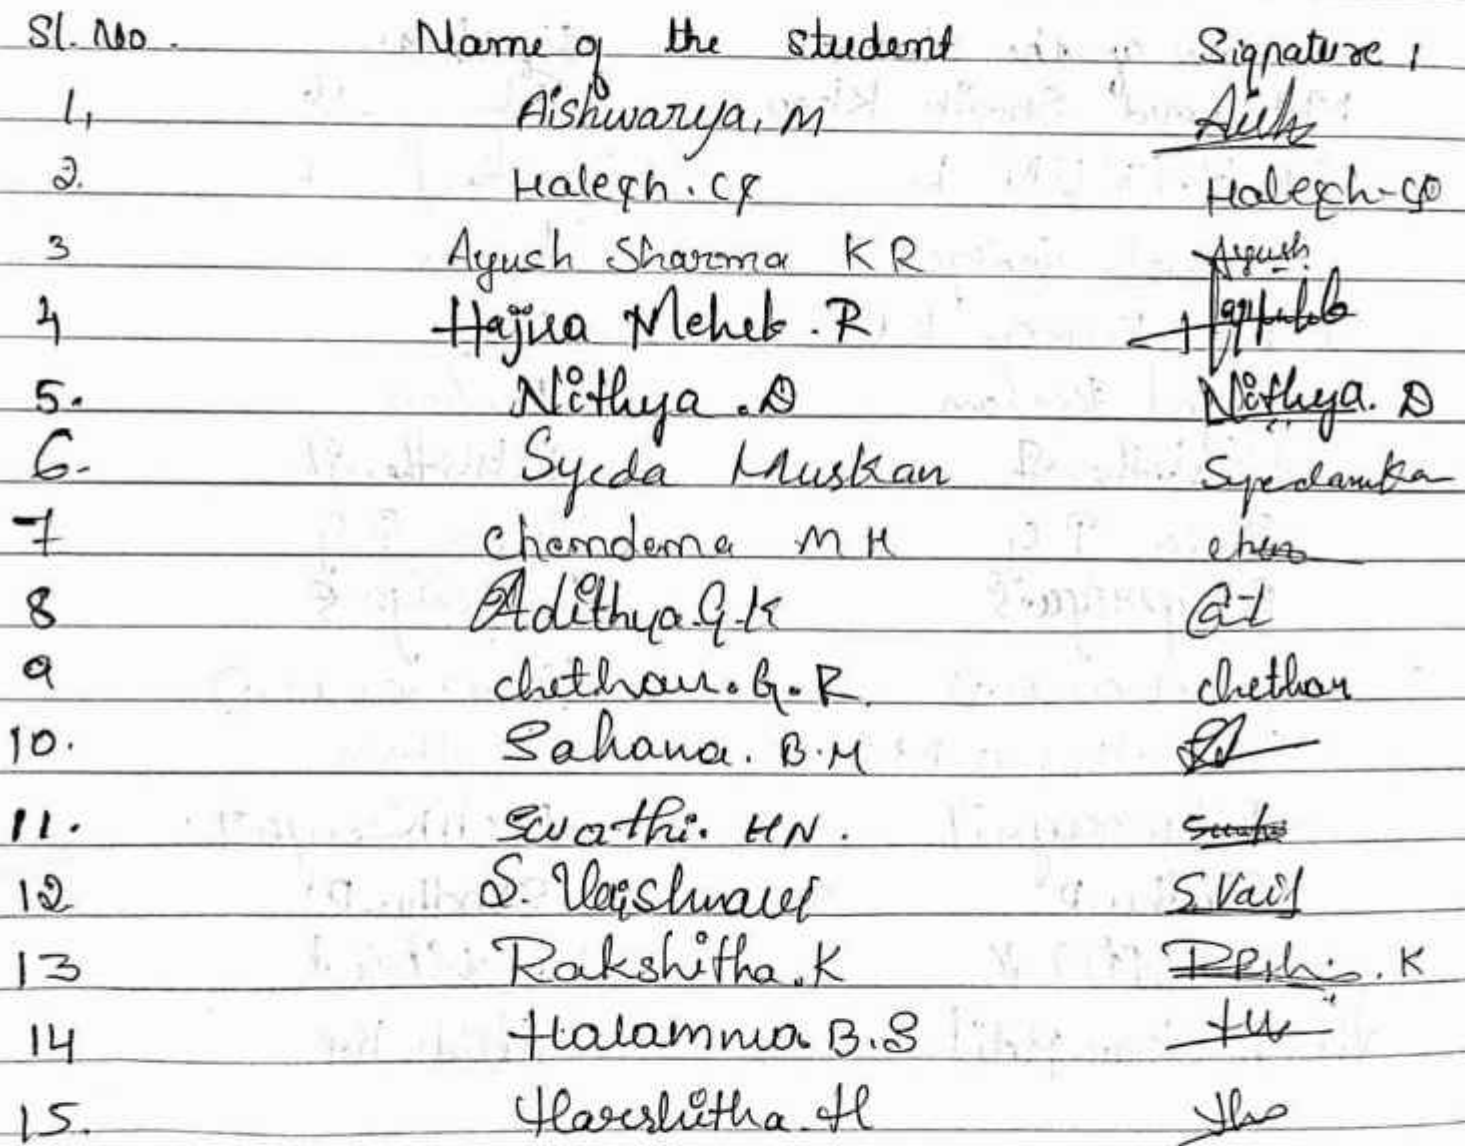 Sl. No. Name of the student Signature
1, Aishwarya, M Aish
2. Halesh. Halesh-
3 Ayush Sharma K R Ayush
4 Hajira Mehek. R
5. Nithya. D Nithya. D
6. Syeda Muskan
7 Chandana M H
8 Adithya. G. K
9 chethan. G. R. chethan
10. Sahana. B. M
11. Swathi. HN.
12 S. Vaishnavi S. Vais
13 Rakshitha. K K
14 Halamma B. S
15. Harshitha. H